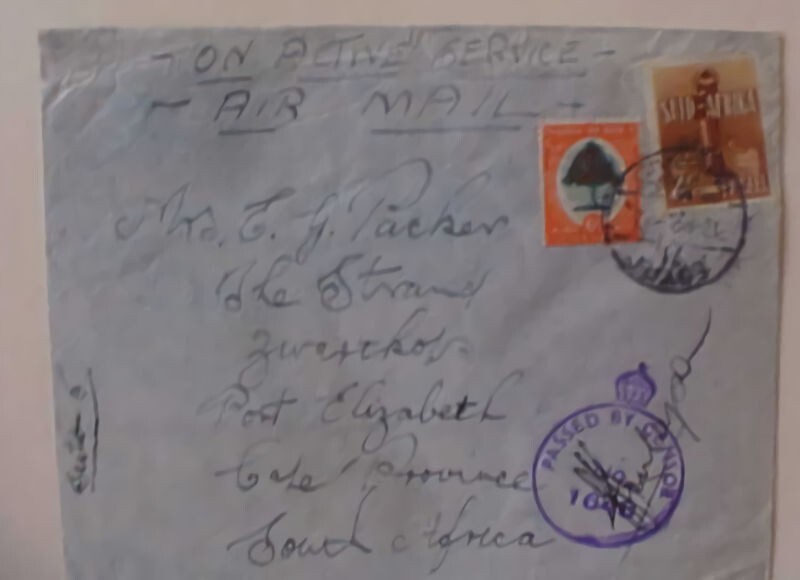 - ON ACTIVE SERVICE -
- AIR MAIL -
SUID-AFRIKA
Mrs. E. G. Packer
The Strand
Zwartkops
Port Elizabeth
Cape Province
South Africa
PASSED BY CENSOR
No.